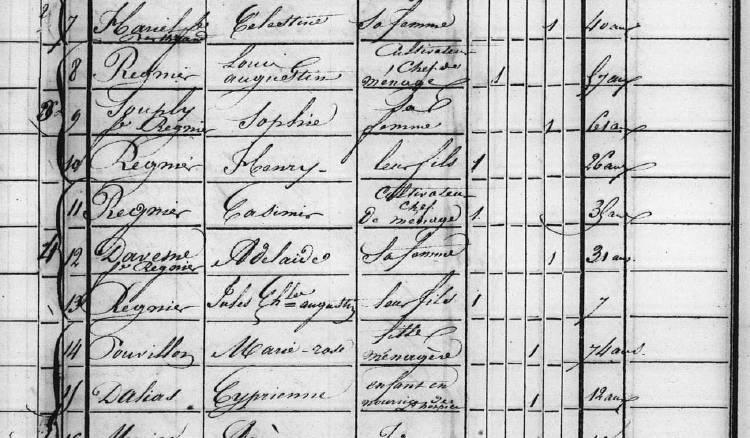 7 Celestine Sa femme 1 40 ans
8 Regnier Louis augustin Cultivateur Chef de ménage 1 57 ans
3 9 Souply fe Regnier Sophie Sa femme 1 61 ans
10 Regnier Henry leur fils 1 26 ans
11 Regnier Casimir Cultivateur Chef De ménage 1
4 12 Davesne fe Regnier Adelaide Sa femme 1 31 ans
13 Regnier Jules Chles augustin leur fils 1 7
14 Pouvillon Marie-rose fille ménagère 1 74 ans
15 Dalias Cyprienne enfant en nourrice de l'hospice 1 12 ans